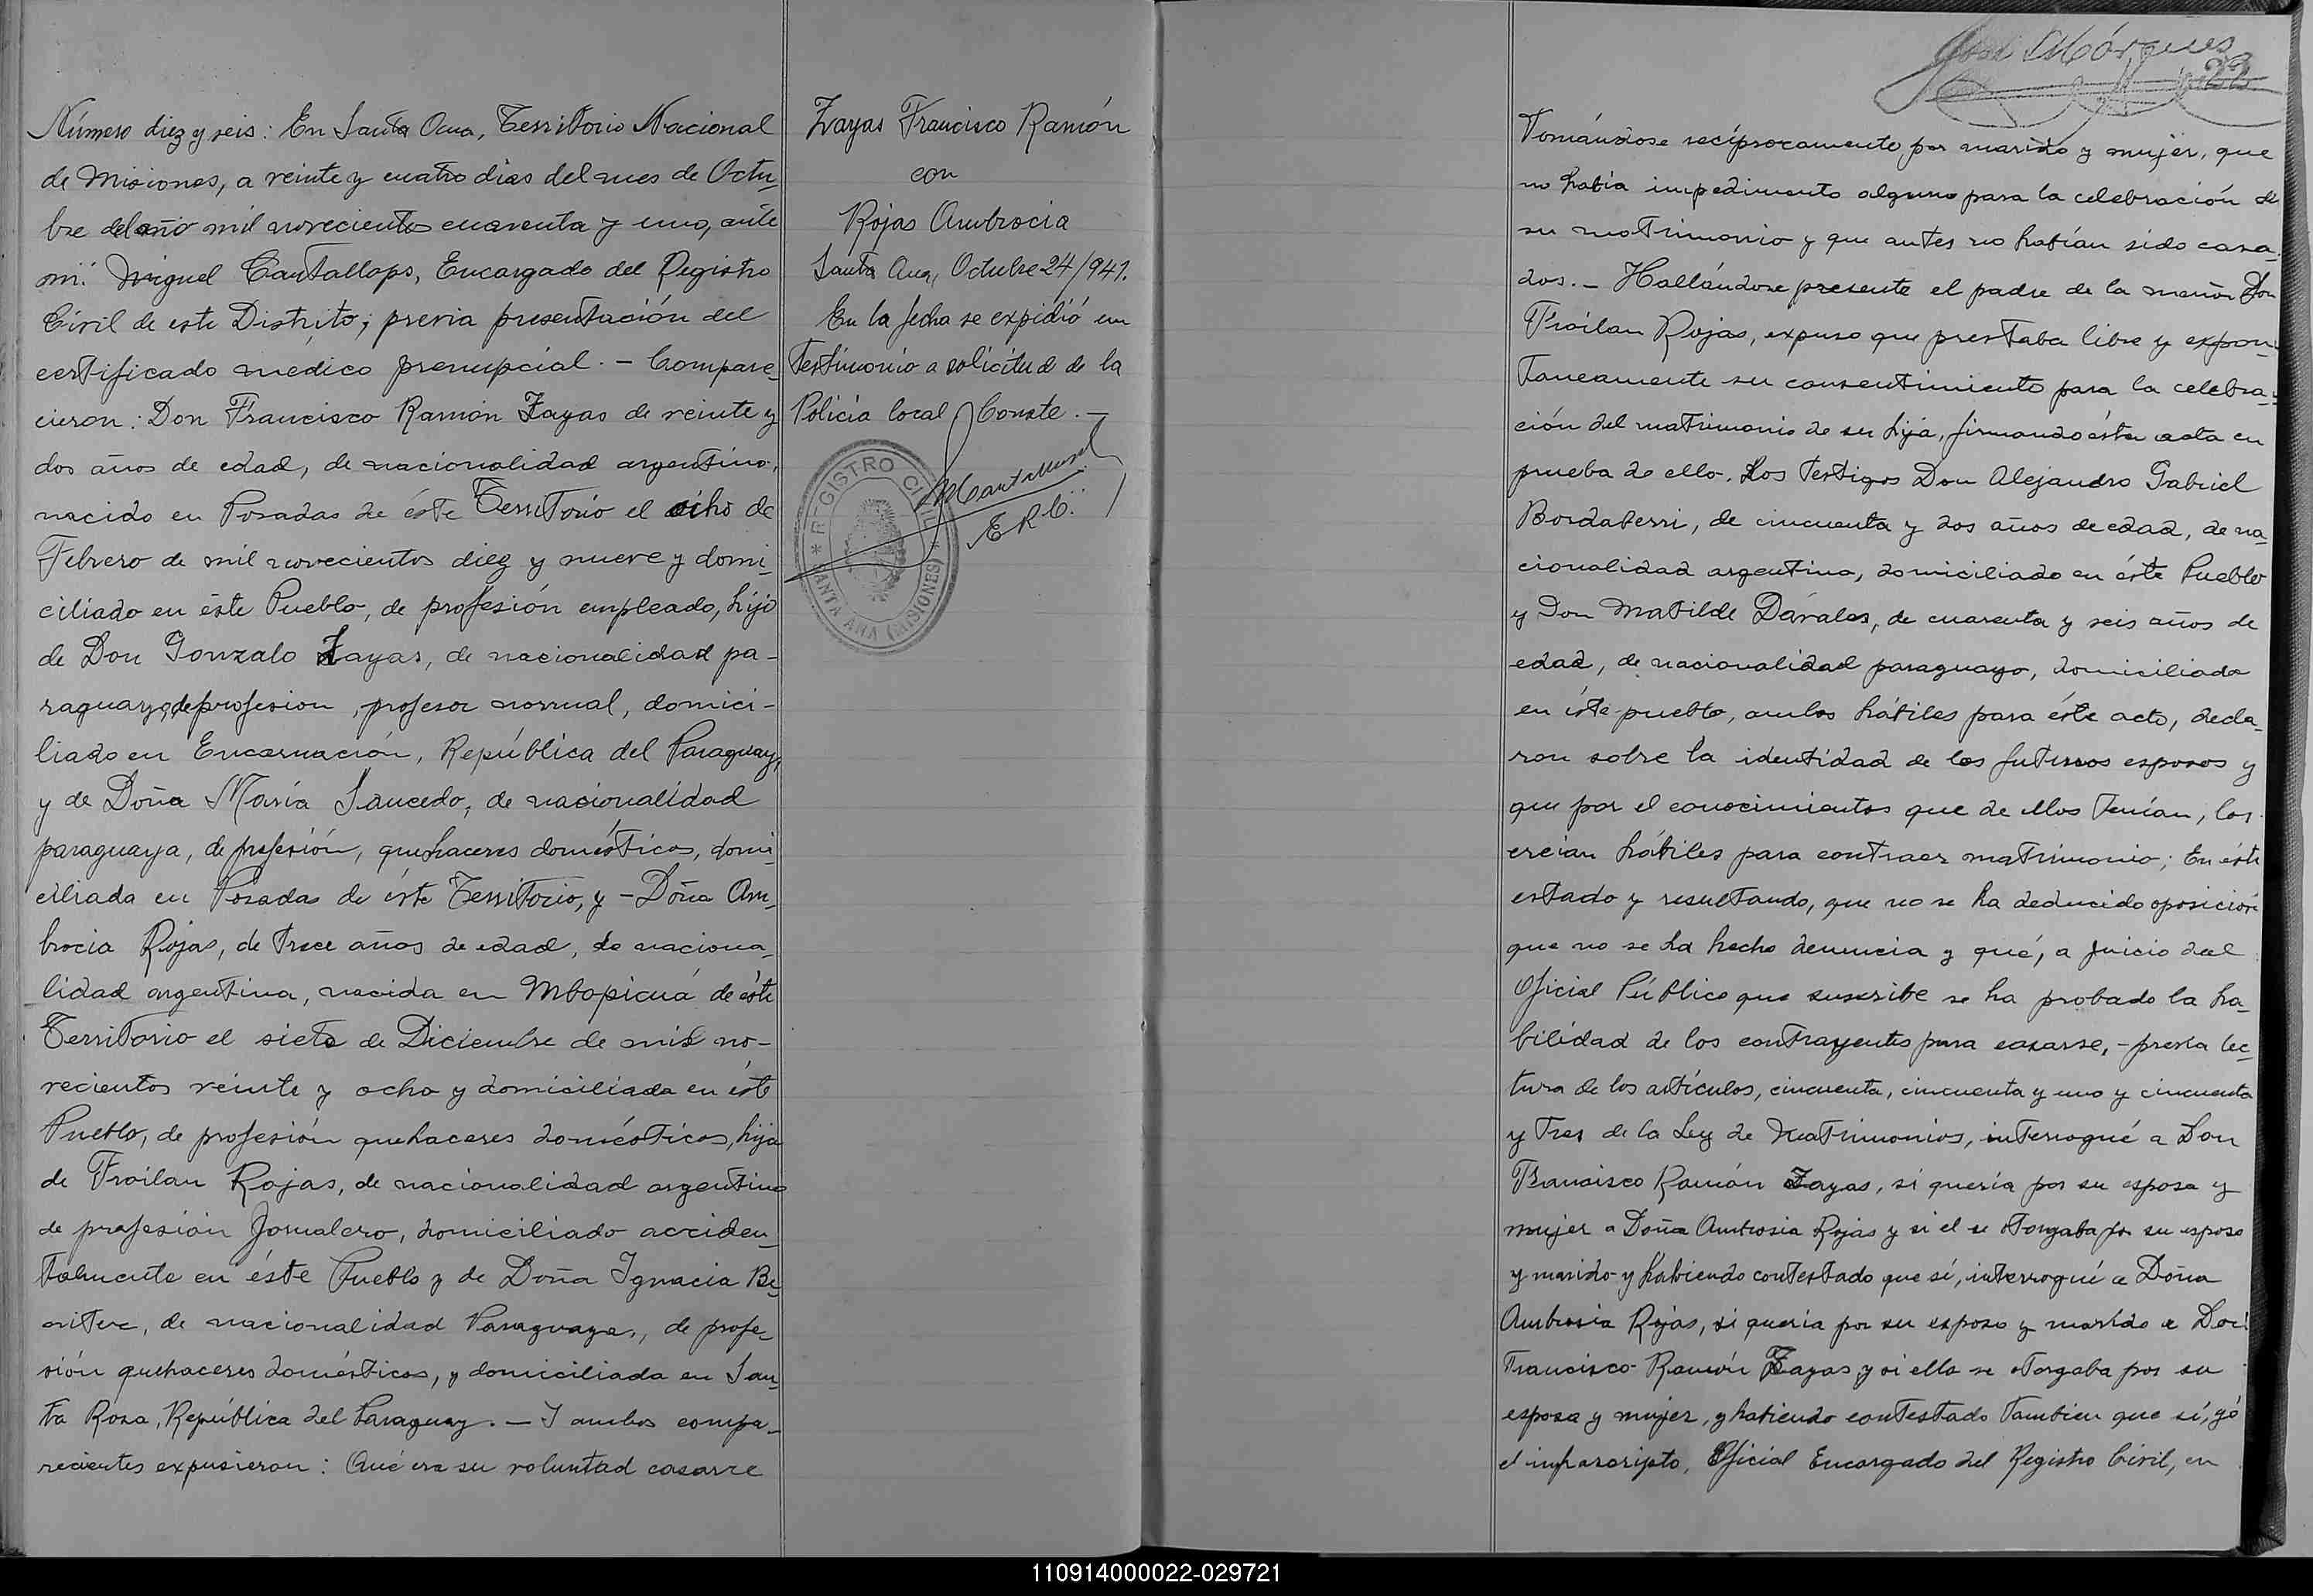 Número diez y seis: En Santa Ana, Territorio Nacional
de Misiones, a veinte y cuatro dias del mes de Octu-
bre del año mil novecientos cuarenta y uno, ante
mi: Miguel Cantallops, Encargado del Registro
Civil de este Distrito; previa presentación del
certificado medico prenupcial. - Compare-
cieron: Don Francisco Ramón Zayas de veinte y
dos años de edad, de nacionalidad argentino,
nacido en Posadas de éste Territorio el ocho de
Febrero de mil novecientos diez y nueve y domi-
ciliado en éste Pueblo, de profesión empleado, hijo
de Don Gonzalo Zayas, de nacionalidad pa-
raguayo, de profesion, profesor normal, domici-
liado en Encarnación, República del Paraguay,
y de Doña María Saucedo, de nacionalidad
paraguaya, de profesión, quehaceres domésticos, domi-
ciliada en Posadas de éste Territorio, y - Doña Am-
brocia Rojas, de trece años de edad, de naciona-
lidad argentina, nacida en Mbopicuá de éste
Territorio el siete de Diciembre de mil no-
vecientos veinte y ocho y domiciliada en éste
Pueblo, de profesión quehaceres domésticos, hija
de Froilan Rojas, de nacionalidad argentino
de profesión Jornalero, domiciliado acciden-
talmente en éste Pueblo y de Doña Ignacia Be-
nitez, de nacionalidad Paraguaya, de profe-
sión quehaceres domésticos, y domiciliada en San-
ta Rosa, República del Paraguay. - I ambos compa-
recientes expusieron: Qué era su voluntad casarse
Zayas Francisco Ramón
con
Rojas Ambrocia
Santa Ana, Octubre 24/941.
En la fecha se expidió un
Testimonio a solicitud de la
Policía local Conste. -
E.R.C.
REGISTRO CIVIL
SANTA ANA (MISIONES)
33
Tomándose recíprocamente por marido y mujer, que
no había impedimento alguno para la celebración de
su matrimonio y que antes no habían sido casa-
dos. - Hallándose presente el padre de la menor Don
Froilan Rojas, expuso que prestaba libre y expon-
taneamente su consentimiento para la celebra-
ción del matrimonio de su hija, firmando ésta acta en
prueba de ello. Los testigos Don Alejandro Gabriel
Bordaberri, de cincuenta y dos años de edad, de na-
cionalidad argentino, domiciliado en éste Pueblo
y Don Matilde Dávalos, de cuarenta y seis años de
edad, de nacionalidad paraguayo, domiciliado
en éste pueblo, ambos hábiles para éste acto, decla-
ron sobre la identidad de los futuros esposos y
que por el conocimientos que de ellos tenían, los
creian hábiles para contraer matrimonio; En éste
estado y resultando, que no se ha deducido oposición
que no se ha hecho denuncia y qué, a juicio del
Oficial Público que suscribe se ha probado la ha-
bilidad de los contrayentes para casarse, - previa lec-
tura de los artículos, cincuenta, cincuenta y uno y cincuenta
y tres de la Ley de Matrimonios, interrogué a Don
Francisco Ramón Zayas, si quería por su esposa y
mujer a Doña Ambrosia Rojas y si el se otorgaba por su esposo
y marido y habiendo contestado que sí, interrogué a Doña
Ambrosia Rojas, si quería por su esposo y marido a Don
Francisco Ramón Zayas y si ella se otorgaba por su
esposa y mujer, y habiendo contestado tambien que sí, yó
el infrascripto, Oficial Encargado del Registro Civil, en
110914000022-029721